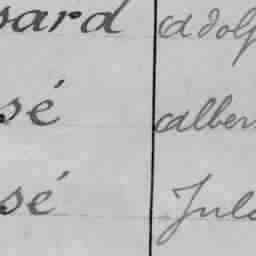 sard adolf
sé alber
sé Jule